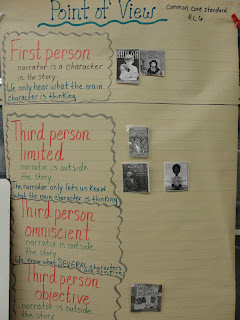 Point of View
Common Core Standard
RL 6
First person
narrator is a character
in the story
We only hear what the main
character is thinking
Third person
limited
narrator is outside
the story
The narrator only lets us know
what the main character is thinking
Third person
omniscient
narrator is outside
the story
We know what SEVERAL characters
Third person
objective
narrator is outside
the story